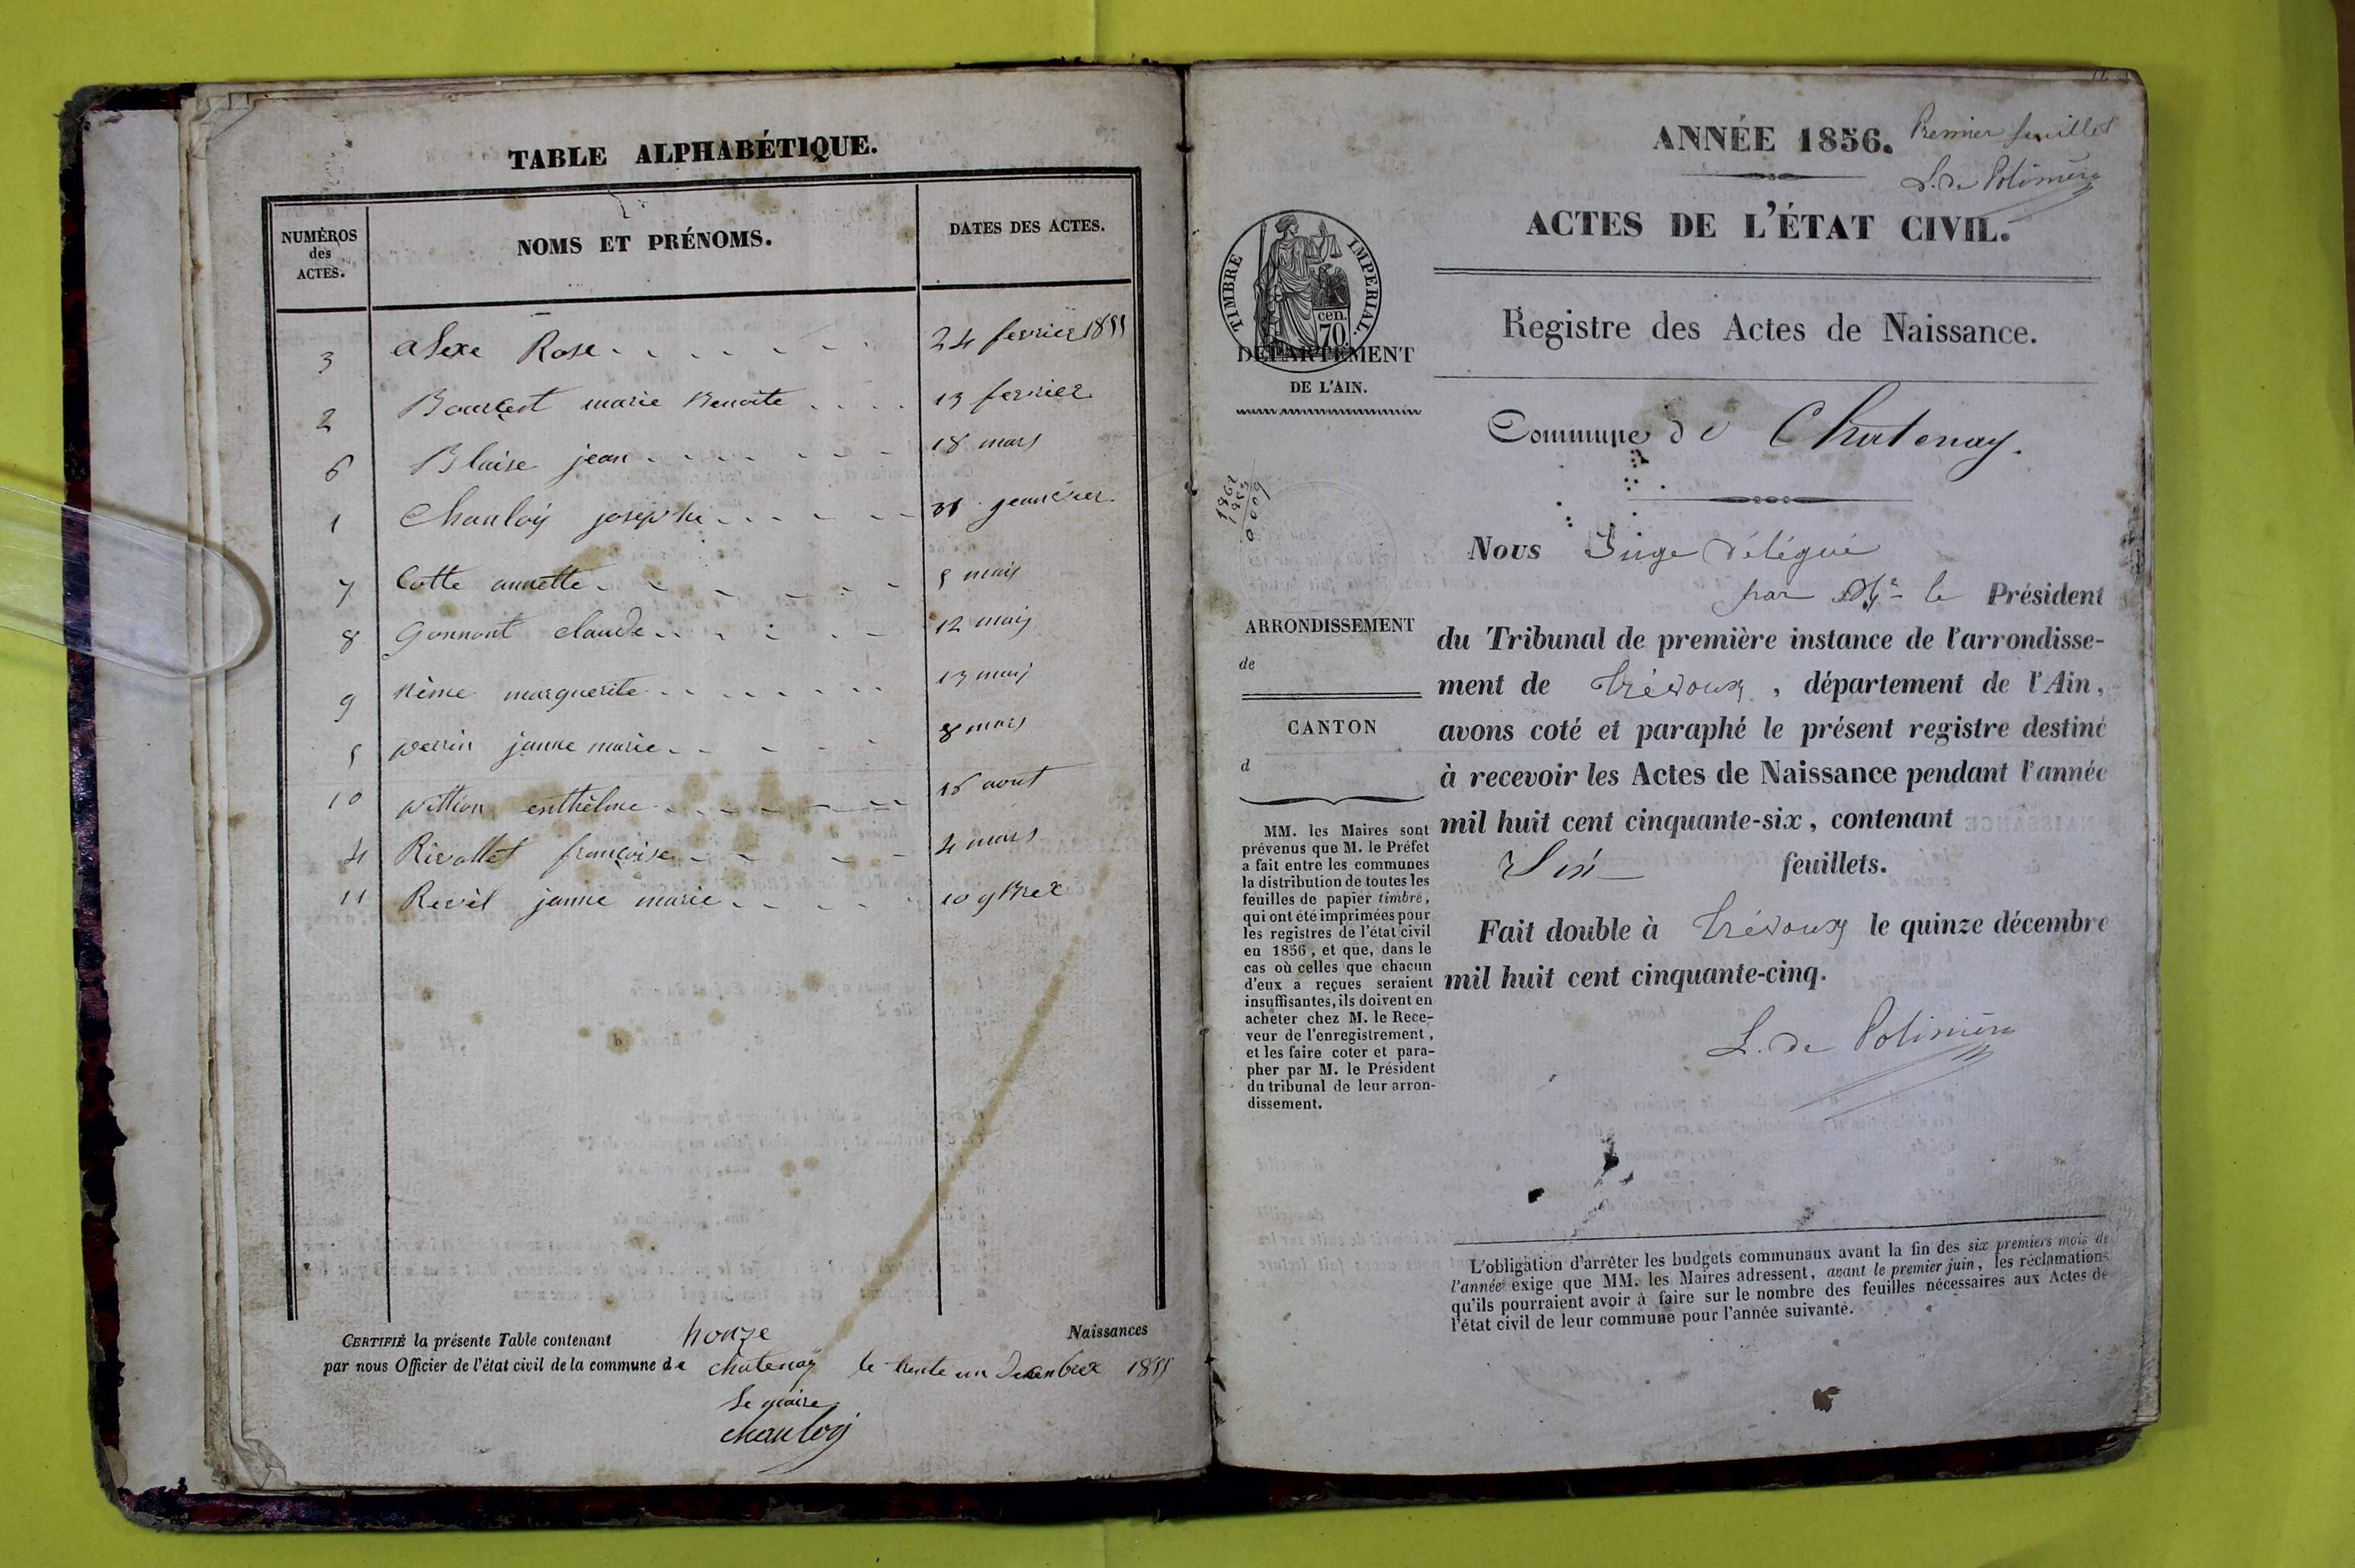 TABLE ALPHABÉTIQUE.
NUMÉROS des ACTES. NOMS ET PRÉNOMS. DATES DES ACTES.
3 alexe Rose 24 fevrier 1855
2 marie Benoite 13 fevrier
6 Blaise jean 18 mars
1 Chanloy josephe 31 janvier
7 Cotte annette 5 mai
8 Gonnont claude 12 mai
9 Nême marguerite 13 mai
5 perrin janne marie 8 mars
10 pittion enthelme 16 aout
4 Rivollet françoise 4 mars
11 Revel janne marie 10 9bre
CERTIFIÉ la présente Table contenant honze Naissances
par nous Officier de l'état civil de la commune de chatenay le trente un Decembre 1855
Le maire
chanloy
ANNÉE 1856. Premier feuillet
L. de Polinière
ACTES DE L'ÉTAT CIVIL.
TIMBRE IMPERIAL.
cen.
70.
DÉPARTEMENT
DE L'AIN.
Registre des Actes de Naissance.
Commune de Chatenay.
Nous Juge délégué
par Mr le Président
du Tribunal de première instance de l'arrondisse-
ment de Trévoux, département de l'Ain,
avons coté et paraphé le présent registre destiné
à recevoir les Actes de Naissance pendant l'année
mil huit cent cinquante-six, contenant
Six feuillets.
Fait double à Trévoux le quinze décembre
mil huit cent cinquante-cinq.
L. de Polinière
ARRONDISSEMENT
de
CANTON
d
MM. les Maires sont
prévenus que M. le Préfet
a fait entre les communes
la distribution de toutes les
feuilles de papier timbré,
qui ont été imprimées pour
les registres de l'état civil
en 1856, et que, dans le
cas où celles que chacun
d'eux a reçues seraient
insuffisantes, ils doivent en
acheter chez M. le Rece-
veur de l'enregistrement,
et les faire coter et para-
pher par M. le Président
du tribunal de leur arron-
dissement.
L'obligation d'arrêter les budgets communaux avant la fin des six premiers mois de
l'année exige que MM. les Maires adressent, avant le premier juin, les réclamations
qu'ils pourraient avoir à faire sur le nombre des feuilles nécessaires aux Actes de
l'état civil de leur commune pour l'année suivante.